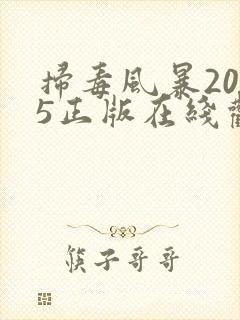 掃毒風暴20
5正版在綫
筷子哥哥